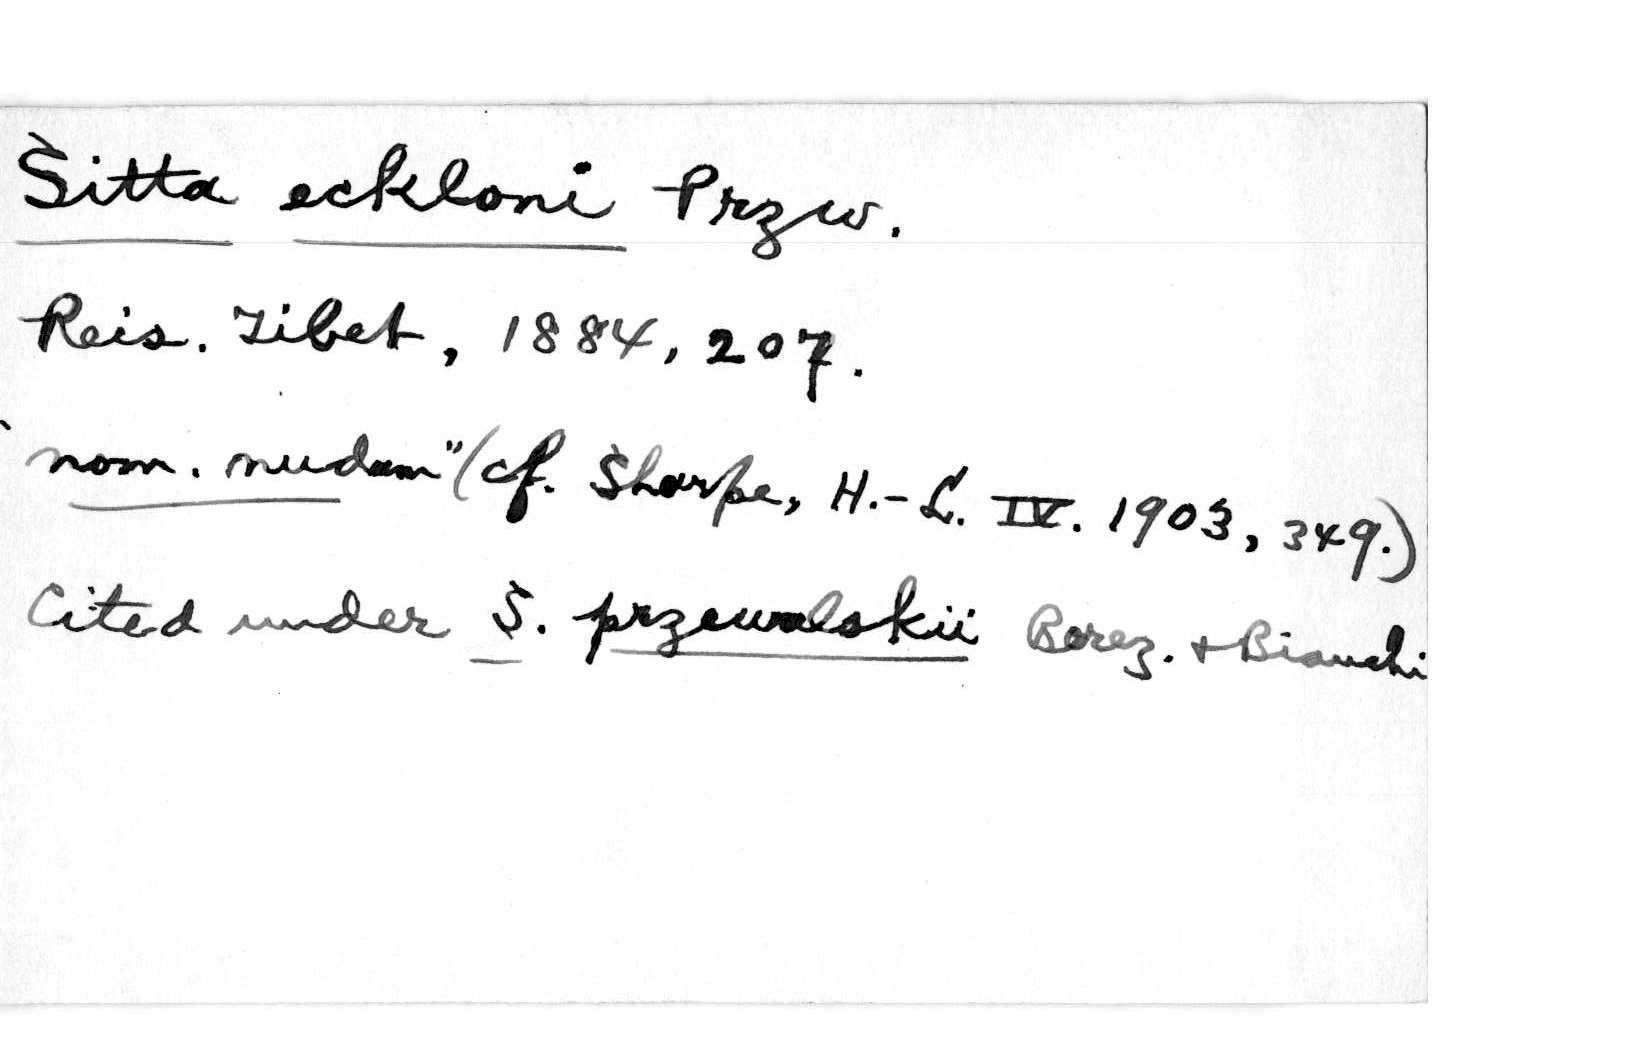 Sitta eckloni Przw.
Reis. Tibet, 1884, 207.
"nom. nudum" (cf. Sharpe, H.-L. IV. 1903, 349.)
Cited under S. przewalskii Berez. + Bianchi